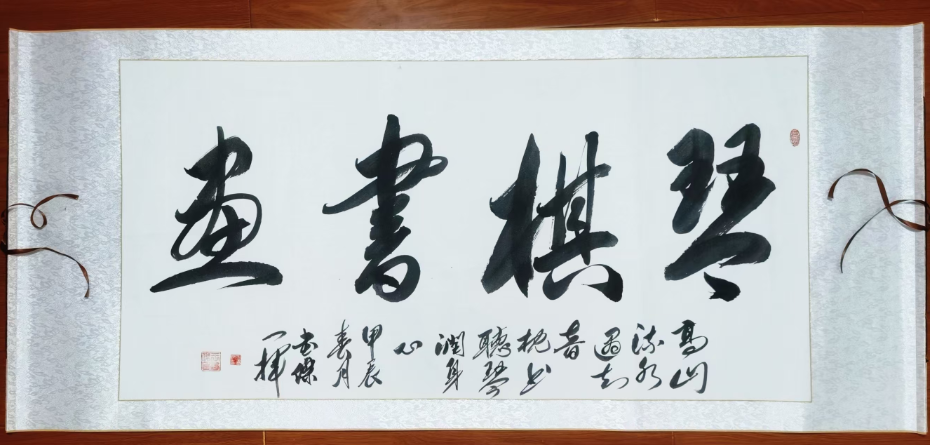 琴棋書畫
高山
流水
遇知
音
枕书
聽琴
潤身
心
甲辰
春月
傑
一揮